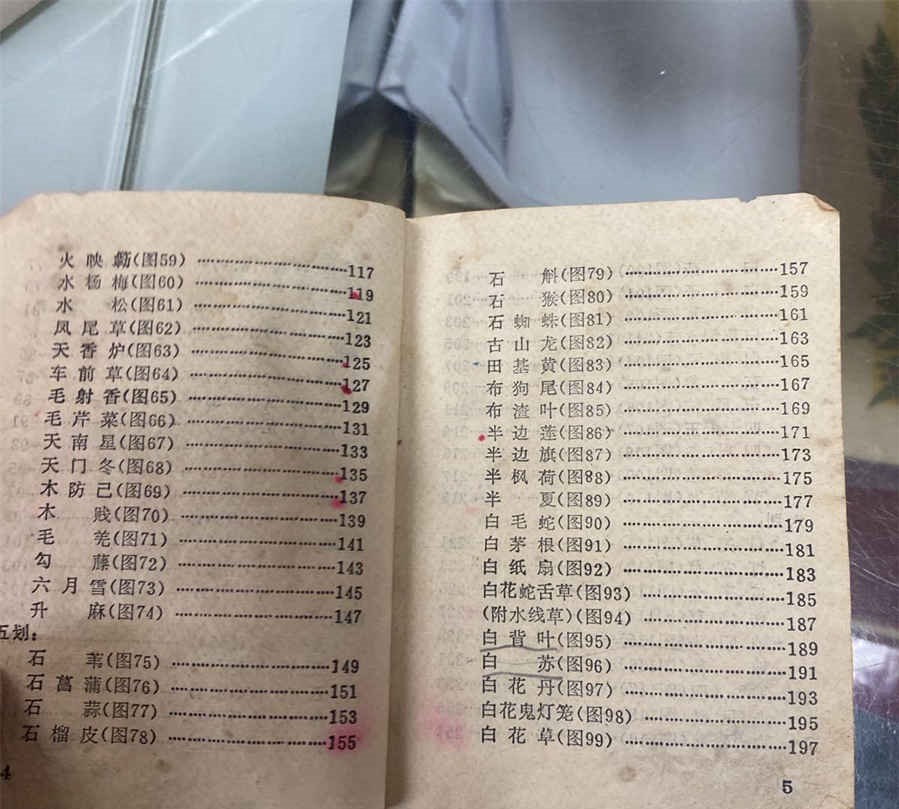 火映蓢(图59)……117
水杨梅(图60)……119
水松(图61)……121
凤尾草(图62)……123
天香炉(图63)……125
车前草(图64)……127
毛射香(图65)……129
毛芹菜(图66)……131
天南星(图67)……133
天门冬(图68)……135
木防己(图69)……137
木贱(图70)……139
毛羗(图71)……141
勾藤(图72)……143
六月雪(图73)……145
升麻(图74)……147
五划:
石苇(图75)……149
石菖蒲(图76)……151
石蒜(图77)……153
石榴皮(图78)……155
4
石斛(图79)……157
石猴(图80)……159
石蜘蛛(图81)……161
古山龙(图82)……163
田基黄(图83)……165
布狗尾(图84)……167
布渣叶(图85)……169
半边莲(图86)……171
半边旗(图87)……173
半枫荷(图88)……175
半夏(图89)……177
白毛蛇(图90)……179
白茅根(图91)……181
白纸扇(图92)……183
白花蛇舌草(图93)……185
(附水线草)(图94)……187
白背叶(图95)……189
白苏(图96)……191
白花丹(图97)……193
白花鬼灯笼(图98)……195
白花草(图99)……197
5